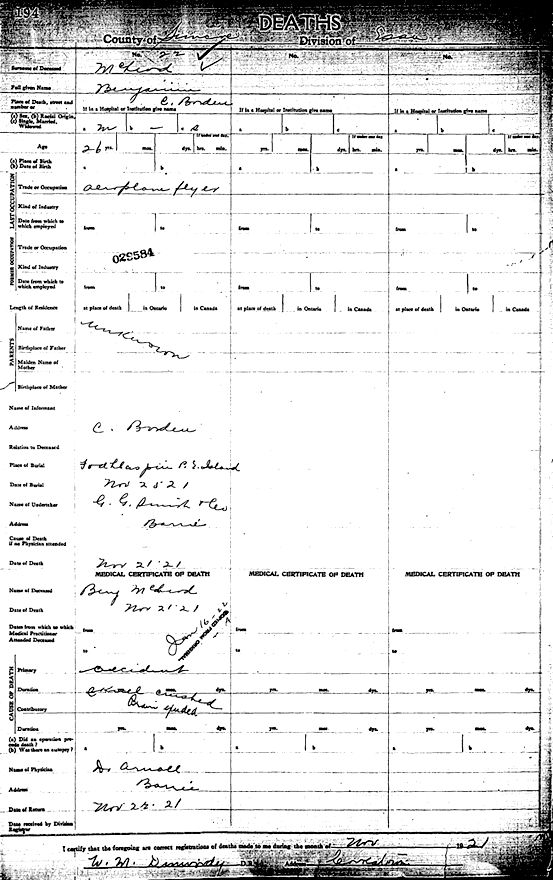 194
DEATHS
County of Simcoe Division of Essa
No. 22 No. No.
Surname of Deceased McLeod
Full given Name Benjamin
Place of Death, street and number or C. Borden
If in a Hospital or Institution give name If in a Hospital or Institution give name If in a Hospital or Institution give name
(a) Sex, (b) Racial Origin, (c) Single, Married, Widowed a M b — c S a b c a b c
If under one day If under one day If under one day
Age 26 yrs. mos. dys. hrs. min. yrs. mos. dys. hrs. min. yrs. mos. dys. hrs. min.
(a) Place of Birth
(b) Date of Birth a b a b a b
LAST OCCUPATION
Trade or Occupation aeroplane flyer
Kind of Industry
Date from which to which employed from to from to from to
FORMER OCCUPATION
Trade or Occupation
029584
Kind of Industry
Date from which to which employed from to from to from to
Length of Residence at place of death in Ontario in Canada at place of death in Ontario in Canada at place of death in Ontario in Canada
PARENTS
Name of Father Unknown
Birthplace of Father
Maiden Name of Mother
Birthplace of Mother
Name of Informant
Address C. Borden
Relation to Deceased
Place of Burial P. E. Island
Date of Burial Nov 25 21
Name of Undertaker G. G. Smith & Co
Address Barrie
Cause of Death if no Physician attended
Date of Death Nov 21 · 21
MEDICAL CERTIFICATE OF DEATH MEDICAL CERTIFICATE OF DEATH MEDICAL CERTIFICATE OF DEATH
Name of Deceased Benj McLeod
Date of Death Nov 21 · 21
Dates from which to which Medical Practitioner Attended Deceased from from from
to to to
Jan 16 - 22
CAUSE OF DEATH
Primary accident
Duration yrs. mos. dys. yrs. mos. dys. yrs. mos. dys.
Skull crushed
Contributory Brain
Duration yrs. mos. dys. yrs. mos. dys. yrs. mos. dys.
(a) Did an operation precede death?
(b) Was there an autopsy? a b a b a b
Name of Physician Dr Arnall
Address Barrie
Date of Return Nov 22 · 21
Date received by Division Registrar
I certify that the foregoing are correct registrations of deaths made to me during the month of Nov 1921
W. M. Dinwoody